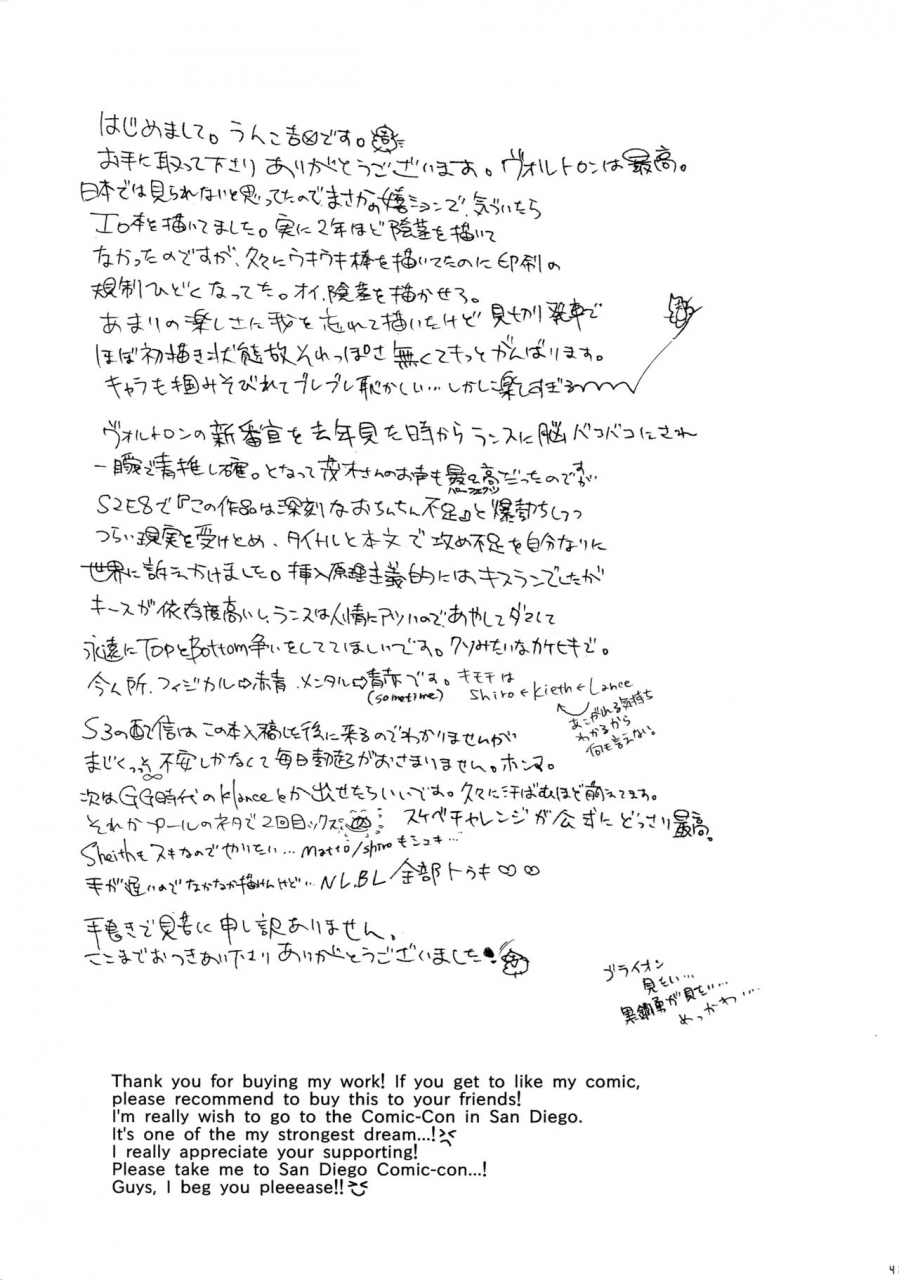 はじめまして。うんこ吉田です。
お手に取って下さり ありがとうございます。ヴォルトロンは最高。
日本では見られないと思ってたのでまさかの嬉ションで、気づいたら
エロ本を描いてました。実に2年ほど陰茎を描いて
なかったのですが、久々にウキウキ棒を描いてたのに印刷の
規制ひどくなってた。オイ、陰茎を描かせろ。
あまりの楽しさに我を忘れて描いたけど 見切り発車で
ほぼ初描き状態故それっぽさ無くてもっとがんばります。
キャラも掴みそびれてブレブレ恥かしい…しかし楽しすぎる
ヴォルトロンの新番宣を去年見た時からランスに脳バコバコにされ
一瞬で青推し確。となって茂木さんのお声も最高だったのですが
パーフェクツ
S2E8で『この作品は深刻なおちんちん不足』と爆勃ちしつつ
つらい現実を受けとめ、タイトルと本文で攻め不足を自分なりに
世界に訴えかけました。挿入原理主義的にはキスランでしたが
キースが依存度高いし、ランスは人情にアツいので、あやしてダマして
永遠にTopとBottom争いをしててほしいです。クソみたいなカケヒキで。
今ん所、フィジカル⇨赤青、メンタル⇨青赤です。
(sometime)
キモチは
Shiro←Kieth←Lance
あこがれる気持ち
わかるから
何も言えない。
S3の配信はこの本入稿した後に来るのでわかりませんが
まじくっそ不安しかなくて毎日勃起がおさまりません。ホンマ。
次はGG時代のKlanceとか出せたらいいです。久々に汗ばむほど萌えてます。
それかプールのネタで2回目ックス スケベチャレンジが公式にどっさり最高。
Sheithもスキなのでやりたい…Matto/shiroもシュキ…
手が遅いのでなかなか描けんけど…NL.BL/全部トゥキ♡♡
手書きで見苦に申し訳ありません。
ここまでおつきあい下さり ありがとうございました
ゴライオン
見たい…
黒鋼勇が見たい…
めっかわ…
Thank you for buying my work! If you get to like my comic,
please recommend to buy this to your friends!
I'm really wish to go to the Comic-Con in San Diego.
It's one of the my strongest dream...!
I really appreciate your supporting!
Please take me to San Diego Comic-con...!
Guys, I beg you pleeease!!